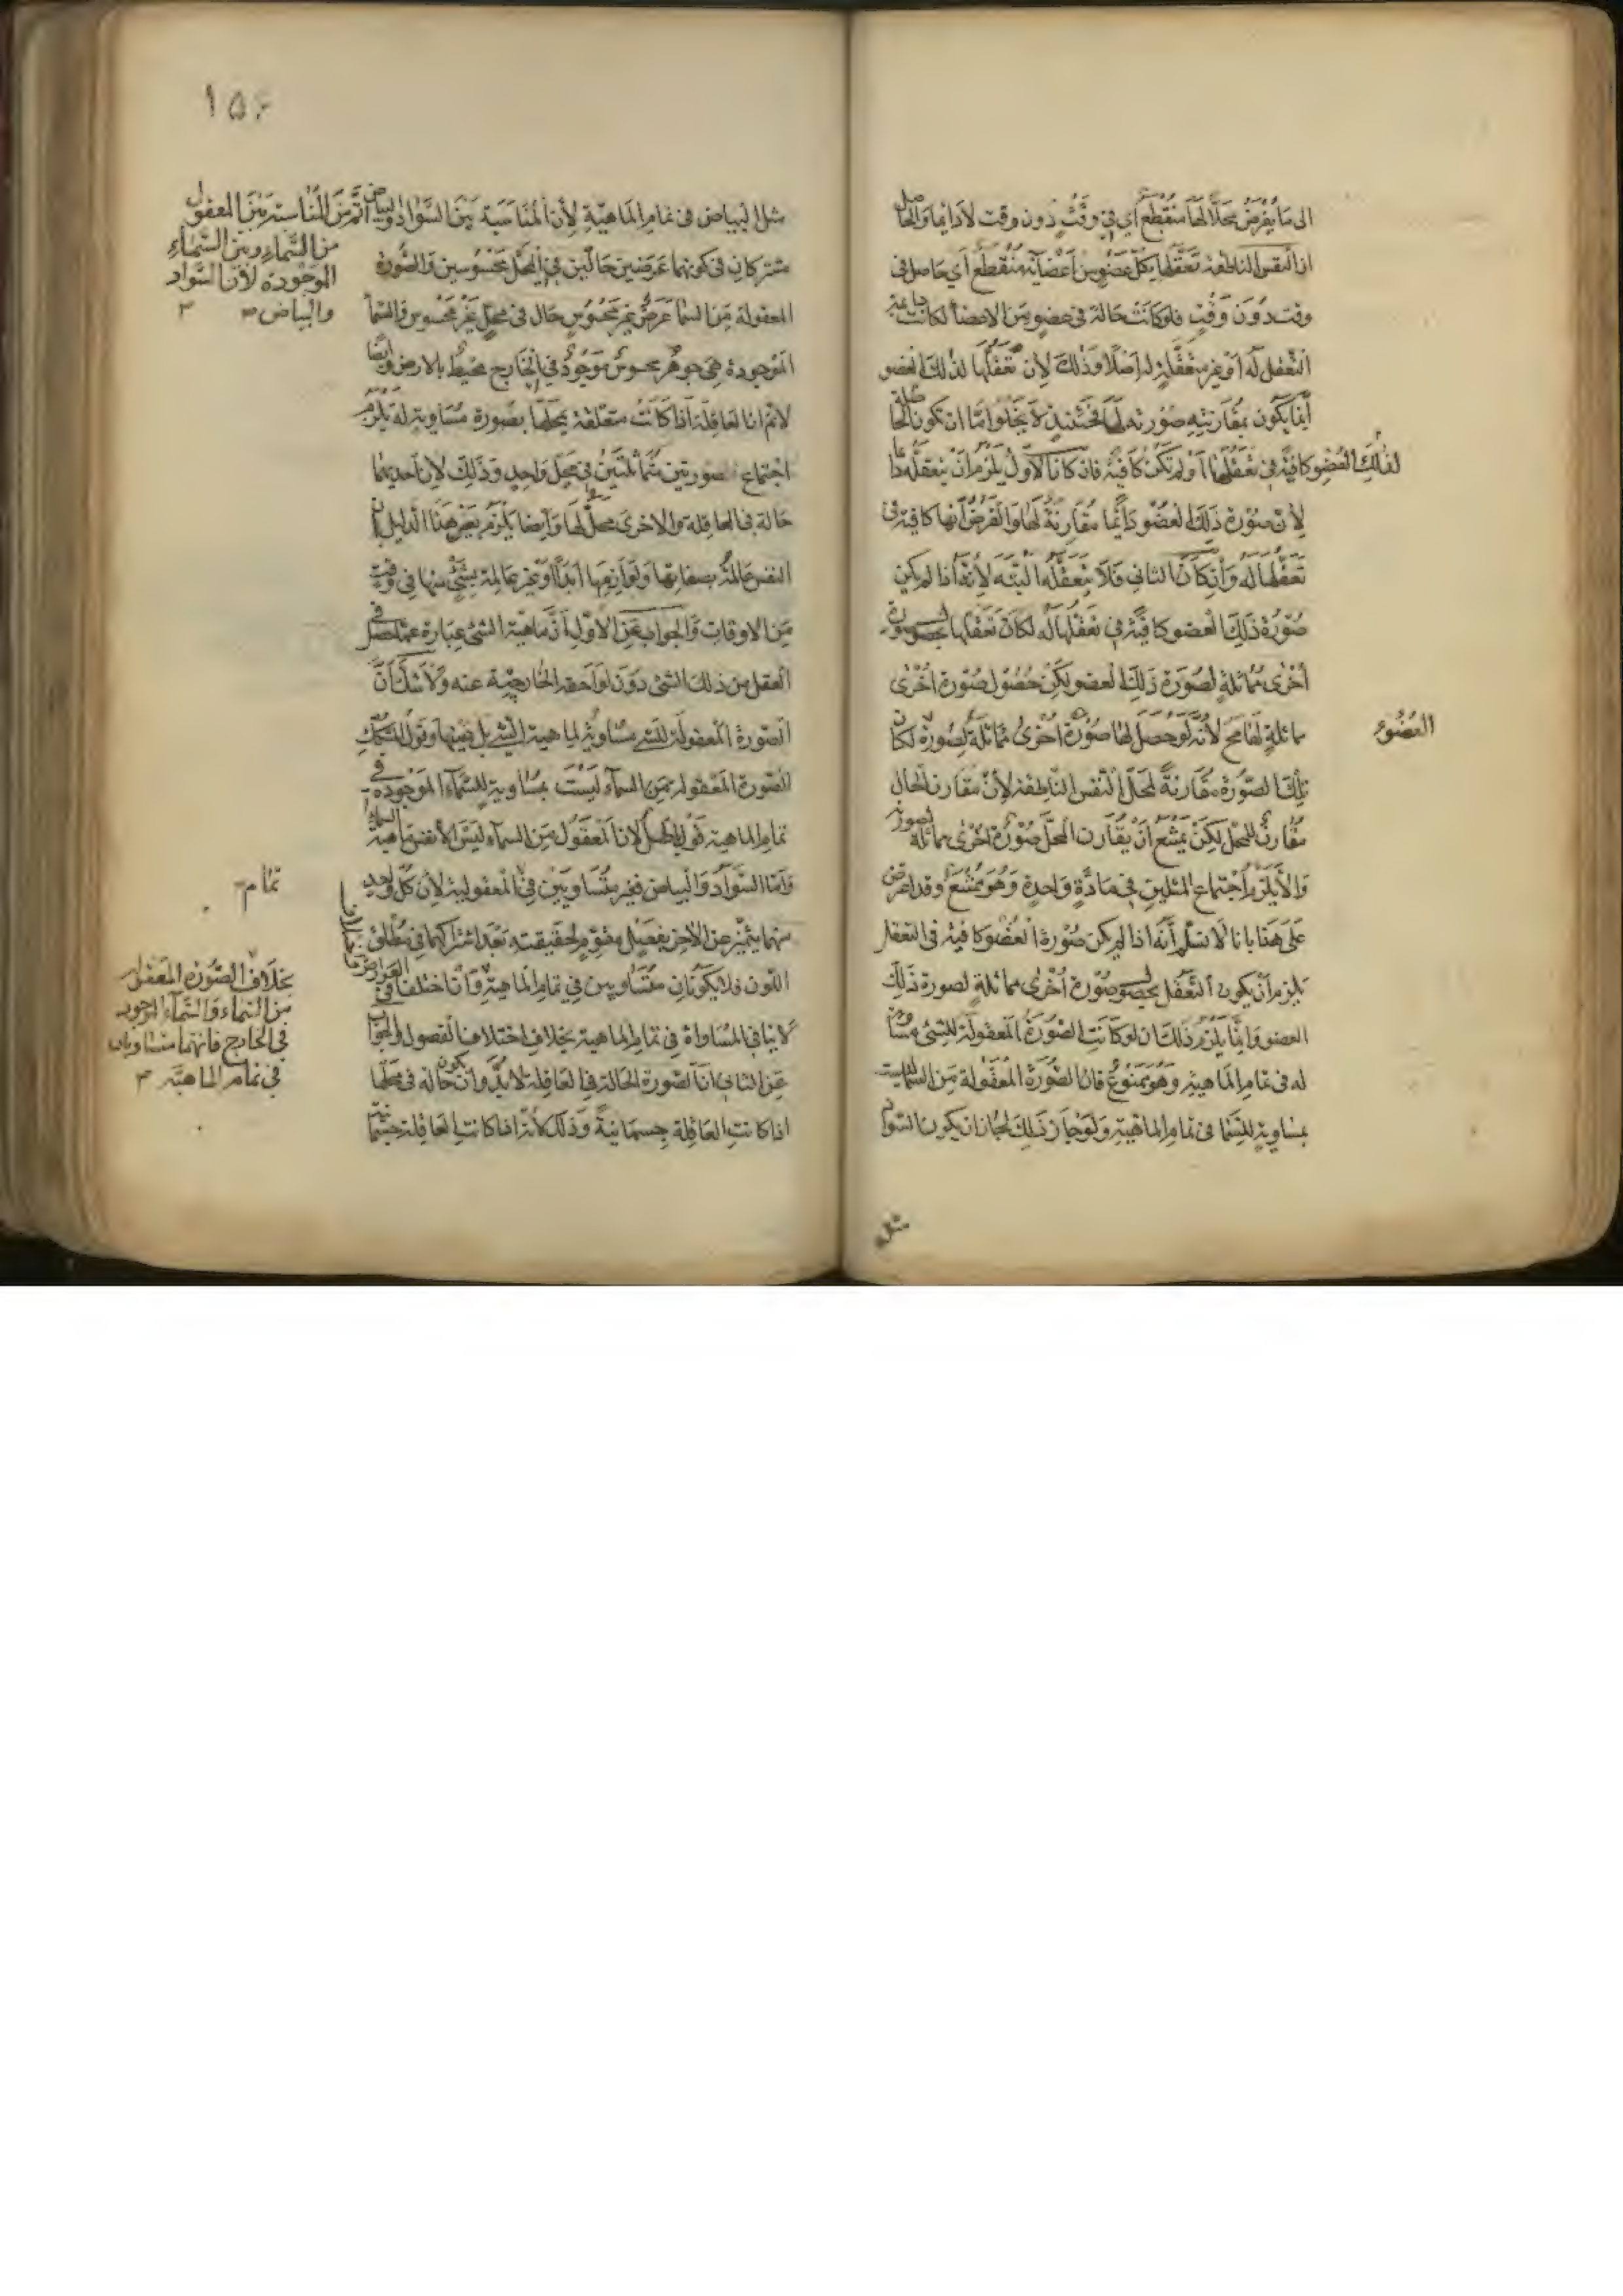 الى ما يفرض محلا لها منقطع اي في وقت دون وقت لا دائما والحاصل
ان النفس الناطقة تعقلها بكل عضو من اعضائه منقطع اي حاصل في
وقت دون وقت فلو كانت حالة في عضو من الاعضا لكانت دائمة
التعقل له او غير متعقلة له اصلا وذلك لان تعقلها لذلك العضو
انما يكون بمقارنة صورته لها فحينئذ لا يخلوا اما ان تكون الحالة
لذلك العضو كافية في تعقلها او لم تكن كافية فان كان الاول يلزم ان يتعقله دائما
لان صورة ذلك العضو دائما مقارنة لها والفرض انها كافية في
تعقلها له وان كان الثاني فلا يتعقله البتة لانه اذا لم يكن
صورة ذلك العضو كافية في تعقلها له لكان تعقلها بحصول صورة
اخرى مماثلة لصورة ذلك العضو لكن حصول صورة اخرى
مماثلة لها مح لانه لو حصل لها صورة اخرى مماثلة لصورة لكان
العضو
تلك الصورة مقارنة لمحل النفس الناطقة لان مقارن الحال
مقارن للمحل لكن يمتنع ان يقارن المحل صورة اخرى مماثلة لصورته
والا يلزم اجتماع المثلين في مادة واحدة وهو ممتنع وقد اعترض
على هذا بانا لا نسلم انه اذا لم يكن صورة العضو كافية في التعقل
يلزم ان يكون التعقل بحصول صورة اخرى مماثلة لصورة ذلك
العضو وانما يلزم ذلك ان لو كانت الصورة المعقولة للشئ مساوية
له في تمام الماهية وهو ممنوع فان الصورة المعقولة من السماء ليست
بمساوية للسما في تمام الماهية ولو جاز ذلك لجاز ان يكون السواد
مثل
١٥٤
مثل البياض في تمام الماهية لان المناسبة بين السواد والبياض اتم من المناسبة بين المعقول
من السماء وبين السماء
الموجودة لان السواد
والبياض
مشتركان في كونهما عرضين حالين في المحل محسوسين والصورة
المعقولة من السما عرض غير محسوس حال في محل غير محسوس والسما
الموجودة هي جوهر محسوس موجود في الخارج محيط بالارض وايضا
لا نم ان العاقلة اذا كانت متعلقة بمحلها بصورة مساوية له يلزم
اجتماع صورتين متماثلتين في محل واحد وذلك لان احديهما
حالة في العاقلة والاخرى محل لها وايضا يلزم بعين هذا الدليل ان
النفس عالمة بصفاتها ولوازمها ابدا او غير عالمة بشئ منها في وقت
من الاوقات والجواب عن الاول ان ماهية الشئ عبارة عما حصل في
العقل من ذلك الشئ دون لواحقه الخارجية عنه ولا شك ان
الصورة المعقولة للشئ مساوية لماهية الشئ بل نفسها وقول المشكك
الصورة المعقولة من السماء ليست بمساوية للسماء الموجودة في
تمام الماهية قول باطل لان المعقول من السماء ليس الا نفس ماهية السماء
واما السواد والبياض فغير متساويين في المعقولية لان كل واحد
تمام
منهما يتميز عن الاخر بفصل مقوم لحقيقته بعد اشتراكهما في مطلق
اللون فلا يكونان متساويين في تمام الماهية وان اختلفا في العوارض
بخلاف الصورة المعقولة
من السماء والسماء الموجود
في الخارج فانهما متساويان
في تمام الماهية
لا ينافي المساواة في تمام الماهية بخلاف اختلاف الفصول والجواب
عن الثاني ان الصورة الحالة في العاقلة لا بد وان يكون حالة في محلها
اذا كانت العاقلة جسمانية وذلك لانه اذا كانت العاقلة جسمانية